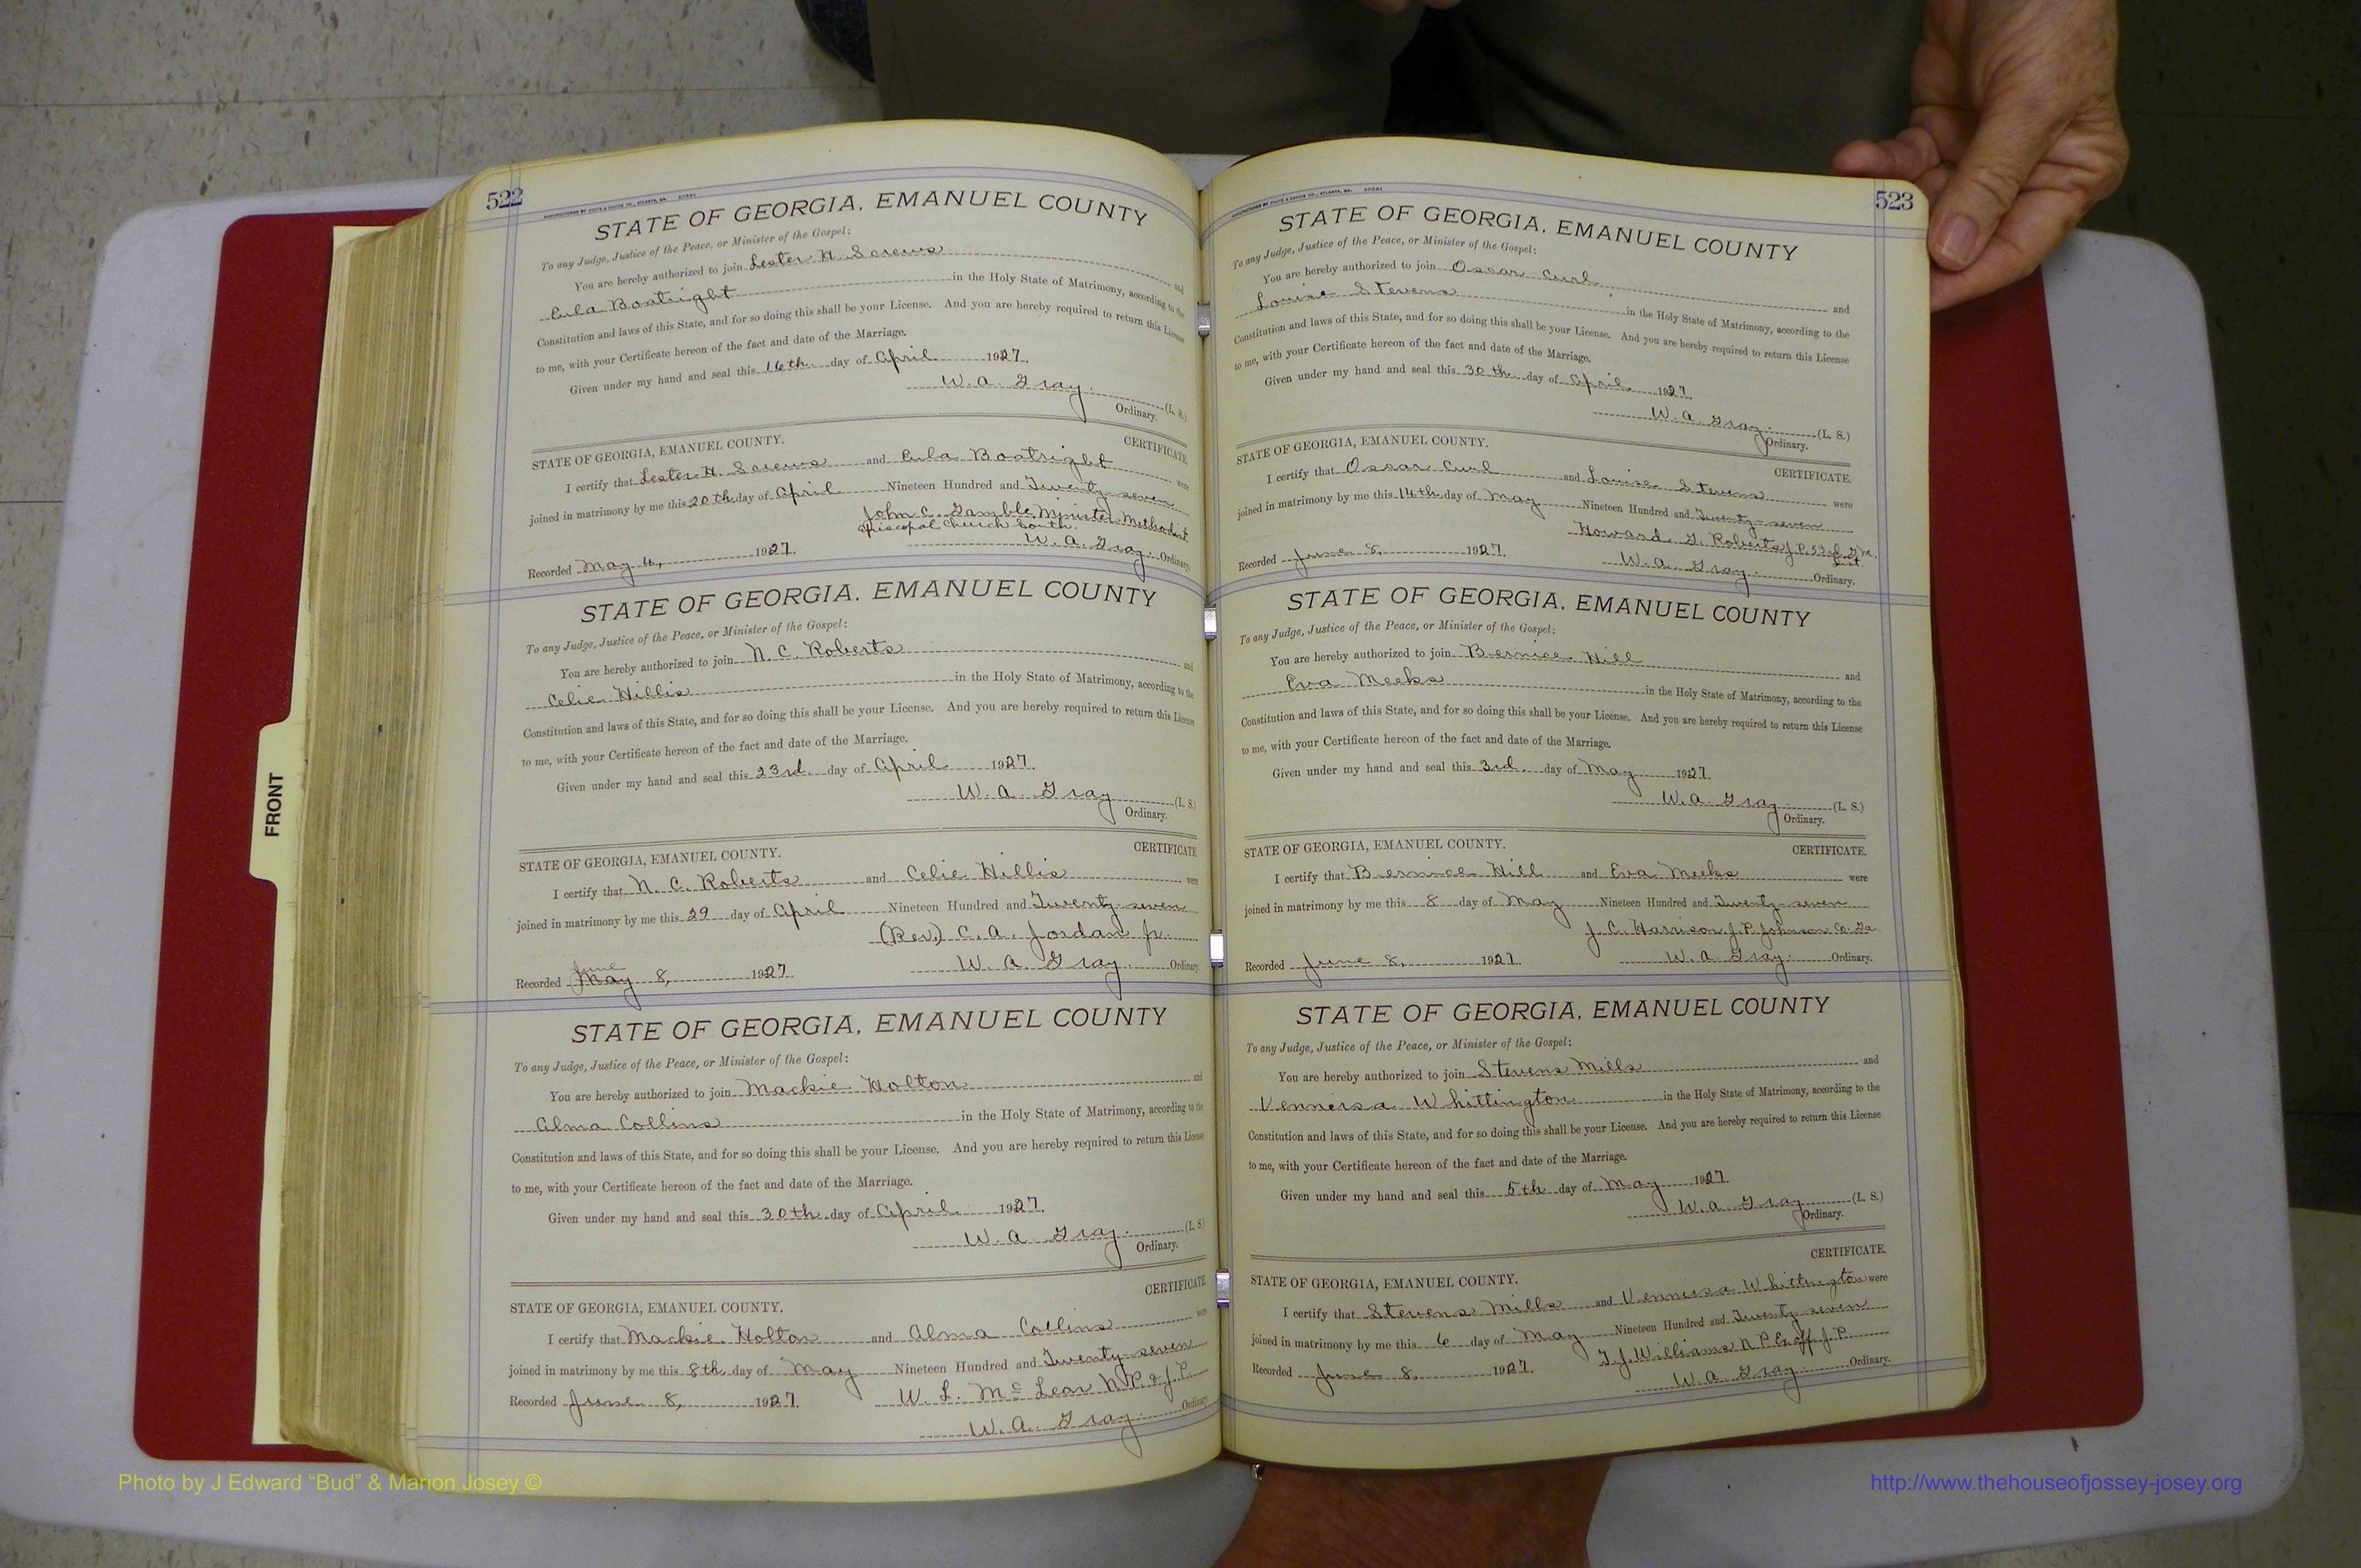 522
STATE OF GEORGIA, EMANUEL COUNTY
To any Judge, Justice of the Peace, or Minister of the Gospel:
You are hereby authorized to join Lester H. Screws and
Eula Boatright in the Holy State of Matrimony, according to the
Constitution and laws of this State, and for so doing this shall be your License. And you are hereby required to return this License
to me, with your Certificate hereon of the fact and date of the Marriage.
Given under my hand and seal this 16th day of April 1927.
W. A. Gray. (L. S.)
Ordinary.
CERTIFICATE
STATE OF GEORGIA, EMANUEL COUNTY.
I certify that Lester H. Screws and Eula Boatright were
joined in matrimony by me this 20th day of April Nineteen Hundred and Twenty-seven
John C. Gamble, Minister Methodist
Episcopal Church South.
Recorded May 4, 1927. W. A. Gray. Ordinary.
STATE OF GEORGIA, EMANUEL COUNTY
To any Judge, Justice of the Peace, or Minister of the Gospel:
You are hereby authorized to join N. C. Roberts and
Celie Hillis in the Holy State of Matrimony, according to the
Constitution and laws of this State, and for so doing this shall be your License. And you are hereby required to return this License
to me, with your Certificate hereon of the fact and date of the Marriage.
Given under my hand and seal this 23rd. day of April 1927.
W. A. Gray (L. S.)
Ordinary.
CERTIFICATE
STATE OF GEORGIA, EMANUEL COUNTY.
I certify that N. C. Roberts and Celie Hillis were
joined in matrimony by me this 29 day of April Nineteen Hundred and Twenty-seven
(Rev.) C. A. Jordan Jr.
June
Recorded May 8, 1927 W. A. Gray. Ordinary
STATE OF GEORGIA, EMANUEL COUNTY
To any Judge, Justice of the Peace, or Minister of the Gospel:
You are hereby authorized to join Mackie Holton and
Alma Collins in the Holy State of Matrimony, according to the
Constitution and laws of this State, and for so doing this shall be your License. And you are hereby required to return this License
to me, with your Certificate hereon of the fact and date of the Marriage.
Given under my hand and seal this 30th. day of April 1927.
W. A. Gray. (L. S.)
Ordinary.
CERTIFICATE
STATE OF GEORGIA, EMANUEL COUNTY.
I certify that Mackie Holton and Alma Collins were
joined in matrimony by me this 8th day of May Nineteen Hundred and Twenty-seven
W. L. McLean N.P. & J.P.
Recorded June 8, 1927. W. A. Gray. Ordinary
523
STATE OF GEORGIA, EMANUEL COUNTY
To any Judge, Justice of the Peace, or Minister of the Gospel:
You are hereby authorized to join Oscar Curl and
Louise Stevens in the Holy State of Matrimony, according to the
Constitution and laws of this State, and for so doing this shall be your License. And you are hereby required to return this License
to me, with your Certificate hereon of the fact and date of the Marriage.
Given under my hand and seal this 30th. day of April 1927
W. A. Gray. (L. S.)
Ordinary.
STATE OF GEORGIA, EMANUEL COUNTY.
CERTIFICATE.
I certify that Oscar Curl and Louise Stevens were
joined in matrimony by me this 14th. day of May Nineteen Hundred and Twenty-seven
Howard G. Roberts J.P. 53rd G.M.
Dist
Recorded June 8, 1927. W. A. Gray. Ordinary.
STATE OF GEORGIA, EMANUEL COUNTY
To any Judge, Justice of the Peace, or Minister of the Gospel:
You are hereby authorized to join Bernice Hill and
Eva Meeks in the Holy State of Matrimony, according to the
Constitution and laws of this State, and for so doing this shall be your License. And you are hereby required to return this License
to me, with your Certificate hereon of the fact and date of the Marriage.
Given under my hand and seal this 3rd. day of May 1927.
W. A. Gray (L. S.)
Ordinary.
STATE OF GEORGIA, EMANUEL COUNTY.
CERTIFICATE.
I certify that Bernice Hill and Eva Meeks were
joined in matrimony by me this 8 day of May Nineteen Hundred and Twenty-seven
J. C. Harrison J.P. Johnson Co. Ga
Recorded June 8, 1927. W. A. Gray. Ordinary.
STATE OF GEORGIA, EMANUEL COUNTY
To any Judge, Justice of the Peace, or Minister of the Gospel:
You are hereby authorized to join Stevens Mills and
Vennersa Whittington in the Holy State of Matrimony, according to the
Constitution and laws of this State, and for so doing this shall be your License. And you are hereby required to return this License
to me, with your Certificate hereon of the fact and date of the Marriage.
Given under my hand and seal this 5th day of May 1927.
W. A. Gray (L. S.)
Ordinary.
CERTIFICATE.
STATE OF GEORGIA, EMANUEL COUNTY.
I certify that Stevens Mills and Vennersa Whittington were
joined in matrimony by me this 6 day of May Nineteen Hundred and Twenty-seven
T. J. Williams N.P. Ex off J.P.
Recorded June 8, 1927. W. A. Gray. Ordinary.
FRONT
Photo by J Edward “Bud” & Marion Josey ©
http://www.thehouseofjossey-josey.org